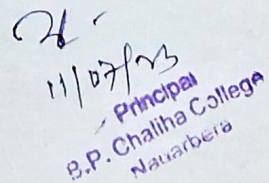 11/07/23
Principal
B.P. Chaliha College
Nauarbera